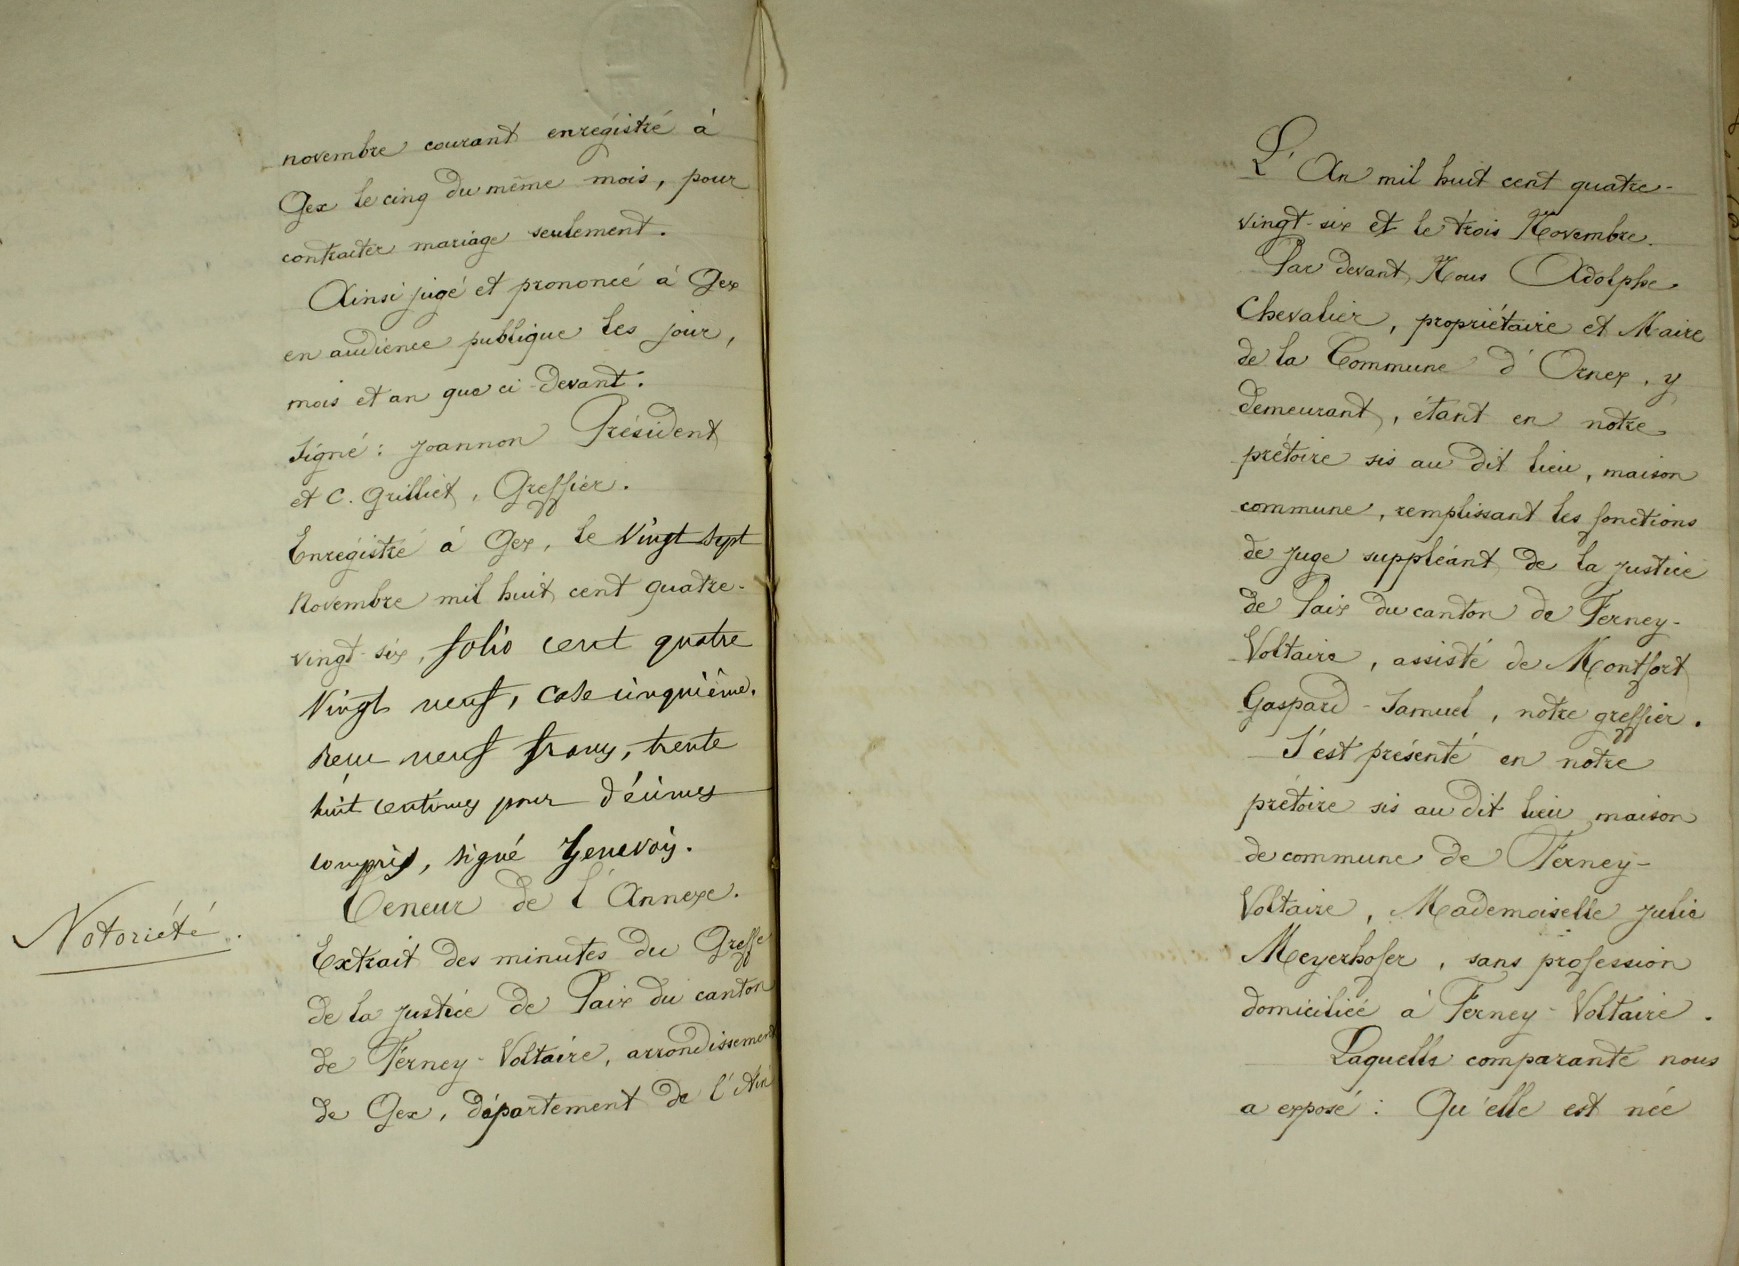 novembre courant enregistré à
Gex le cinq du même mois, pour
contracter mariage seulement.
Ainsi jugé et prononcé à Gex
en audience publique les jour,
mois et an que ci-devant.
Signé : Joannon Président
et C. Grilliet, Greffier.
Enregistré à Gex, le vingt sept
Novembre mil huit cent quatre-
vingt-six, folio cent quatre
vingt neuf, case cinquième.
neuf francs, trente
huit centimes pour décimes
compris, signé Genevois.
Teneur de l'Annexe.
Notoriété.
Extrait des minutes du Greffe
de la justice de Paix du canton
de Ferney-Voltaire, arrondissement
de Gex, département de l'Ain
L'An mil huit cent quatre-
vingt-six et le trois Novembre.
Par devant Nous Adolphe
Chevalier, propriétaire et Maire
de la Commune d'Ornex, y
demeurant, étant en notre
prétoire sis au dit lieu, maison
commune, remplissant les fonctions
de juge suppléant de la justice
de Paix du canton de Ferney-
Voltaire, assisté de Montfort
Gaspard-Samuel, notre greffier.
S'est présenté en notre
prétoire sis au dit lieu maison
de commune de Ferney-
Voltaire, Mademoiselle Julie
Meyerhofer, sans profession
domiciliée à Ferney-Voltaire.
Laquelle comparante nous
a exposé : Qu'elle est née